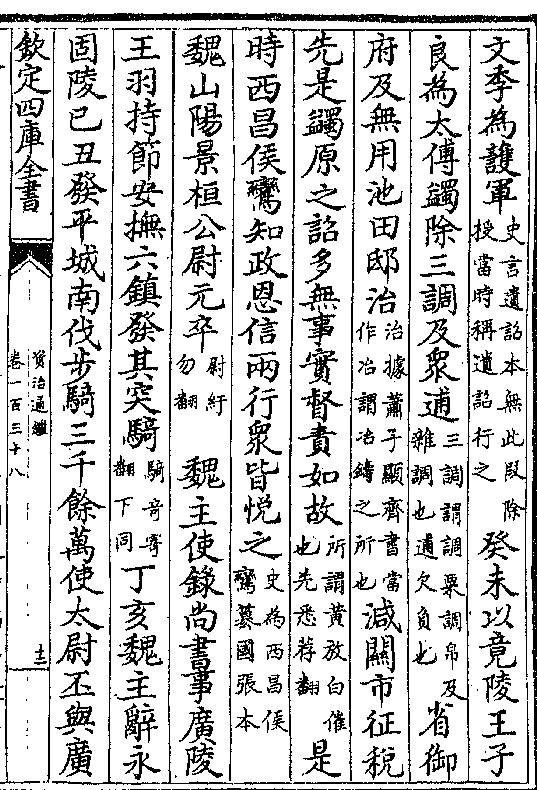 文季為護軍史言遺詔本無此段除授當時稱遺詔行之癸未以竟陵王子
良為太傅蠲除三調及衆逋三調謂調粟調帛及雜調也逋欠負也省御
府及無用池田邸治治據蕭子顯齊書當作冶謂冶鑄之所也減關市征稅
先是蠲原之詔多無事實督責如故所謂黄放白催也先悉荐翻是
時西昌侯鸞知政恩信兩行衆皆悦之史為西昌侯鸞簒國張本
魏山陽景桓公尉元卒尉紆勿翻 魏主使錄尚書事廣陵
王羽持節安撫六鎮發其突騎騎奇寄翻下同丁亥魏主辭永
固陵已丑發平城南伐步騎三千餘萬使太尉丕與廣
欽定四庫全書
資治通鑑
卷一百三十八
十二